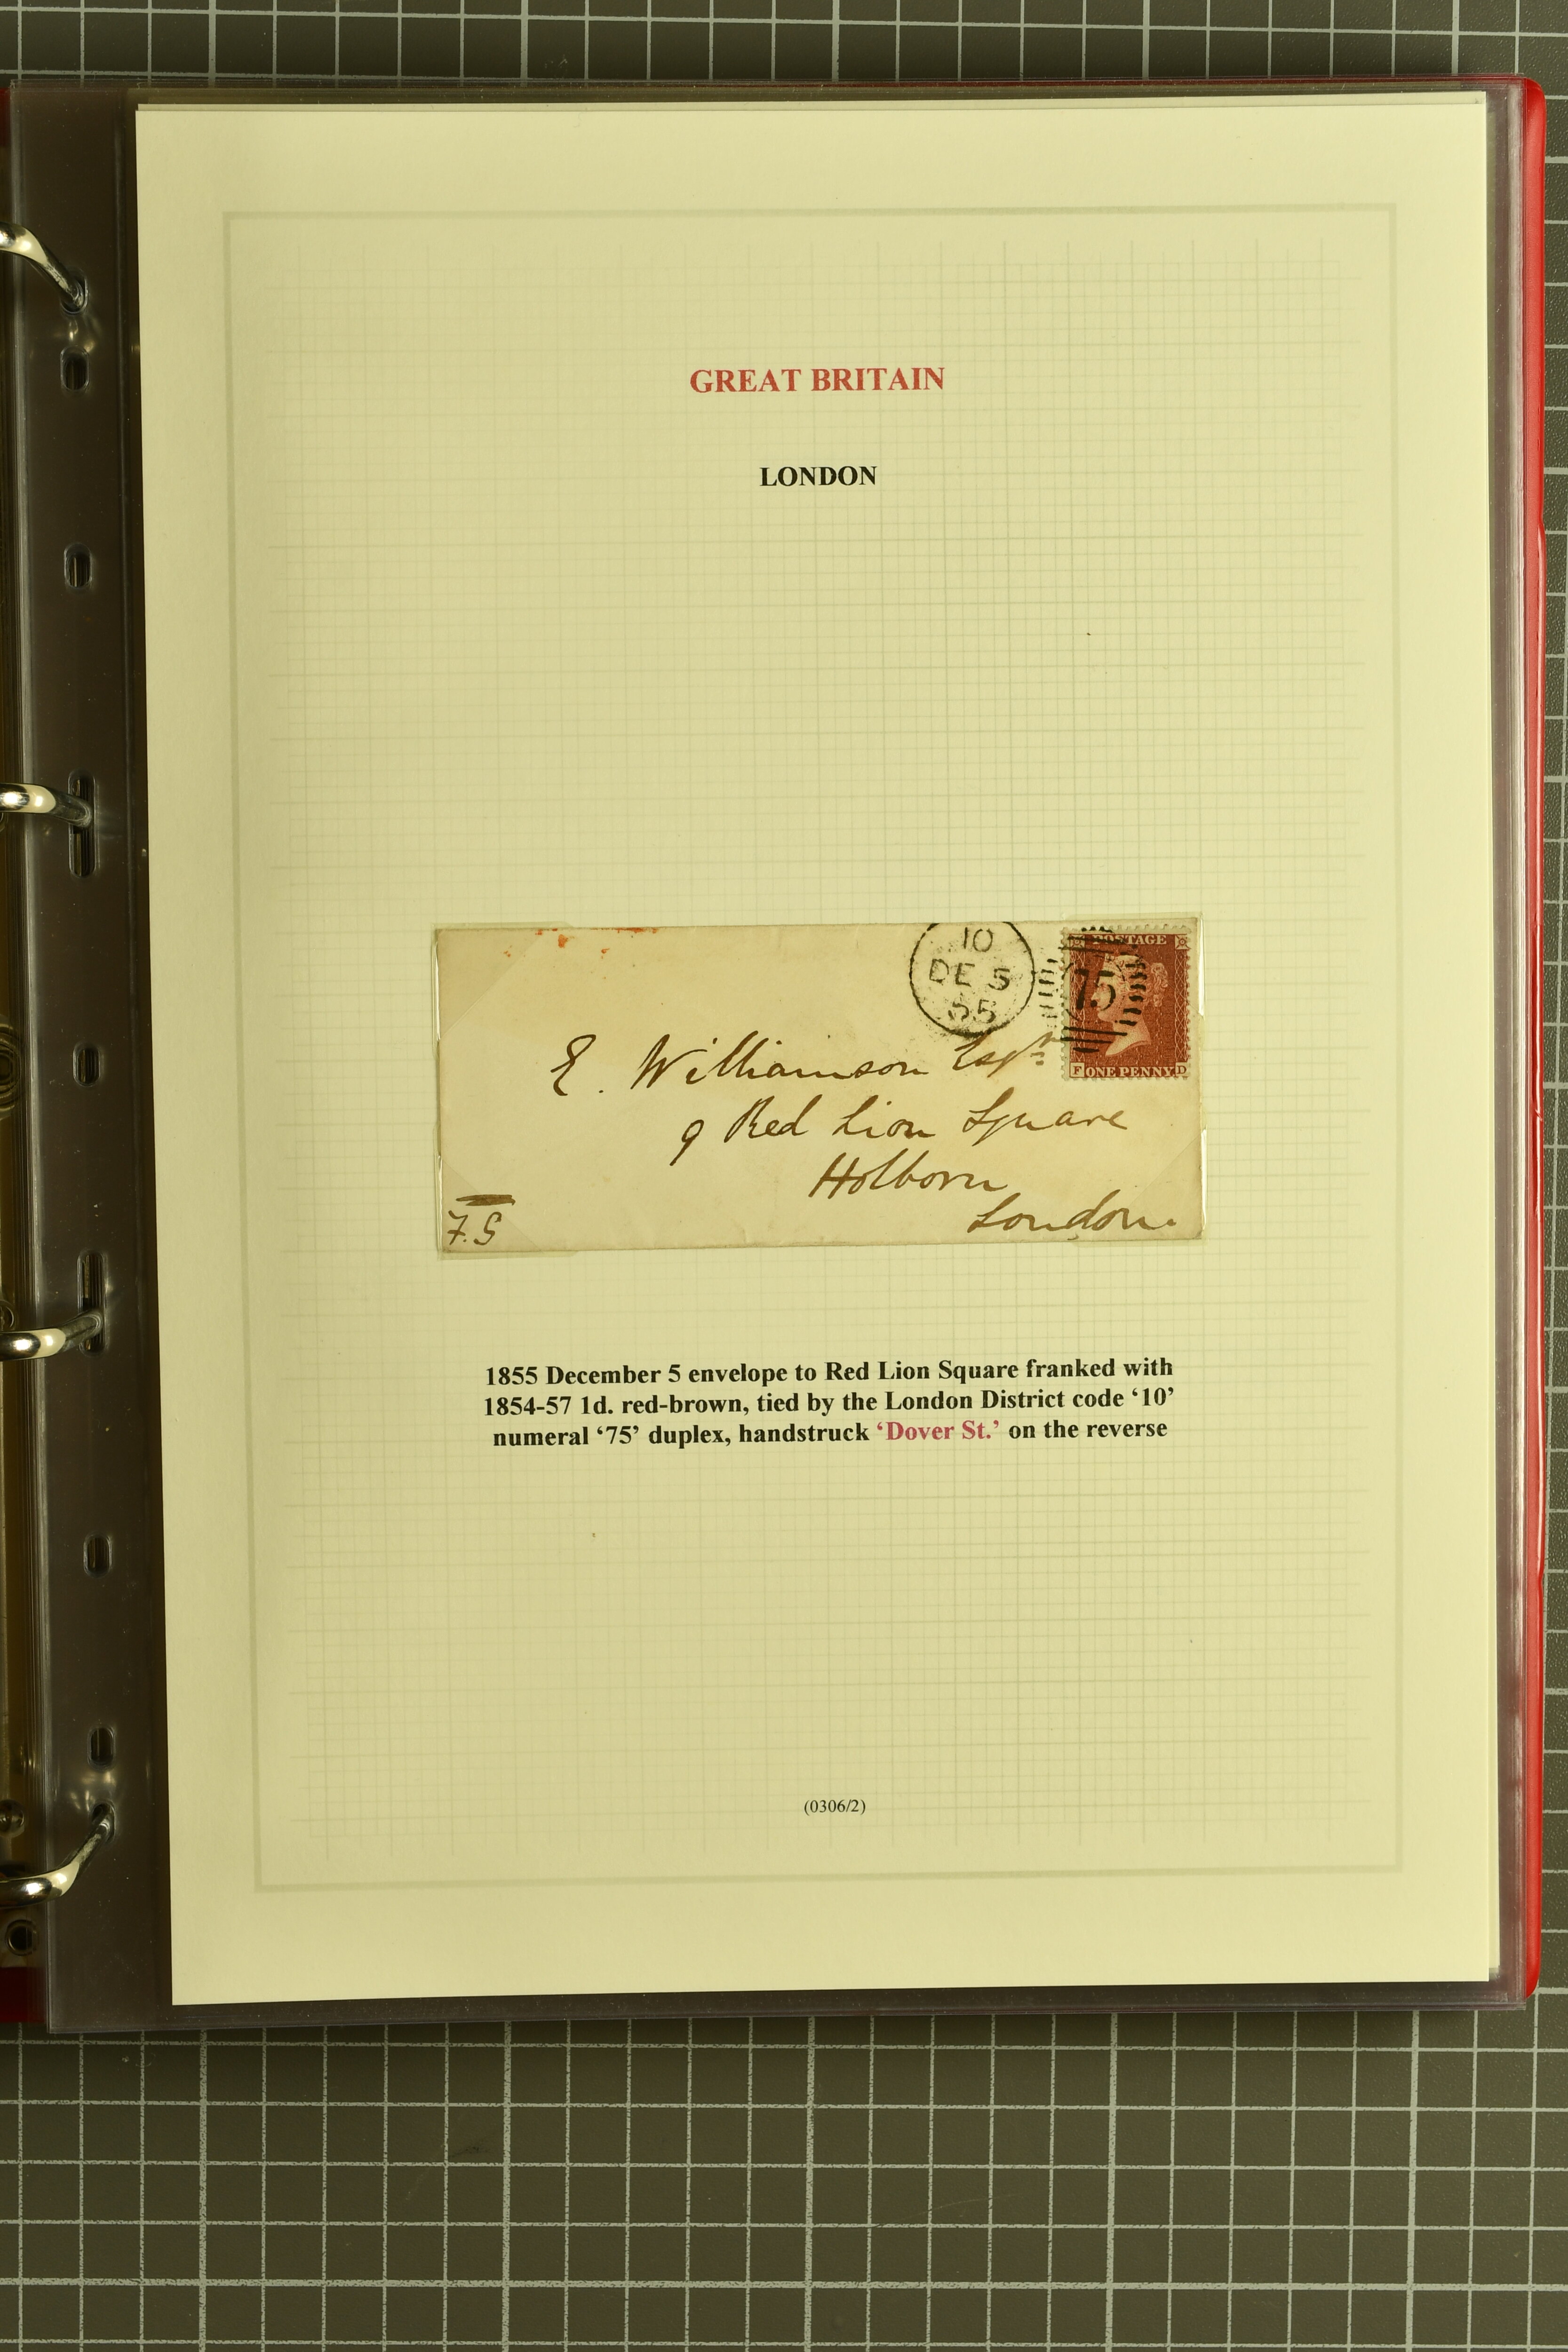 GREAT BRITAIN
LONDON
10
DE 5
55
75
POSTAGE
F ONE PENNY D
E. Williamson Esqr
9 Red Lion Square
Holborn
London.
F.G
1855 December 5 envelope to Red Lion Square franked with
1854-57 1d. red-brown, tied by the London District code ‘10’
numeral ‘75’ duplex, handstruck ‘Dover St.’ on the reverse
(0306/2)